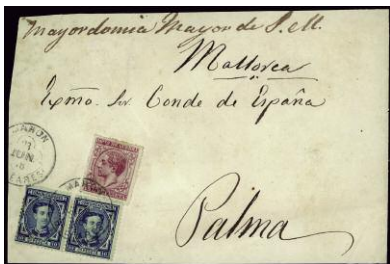 Mayordomia Mayor de S. M.
Mallorca
Exmo. Sr. Conde de España
Palma
MAHON
JUN